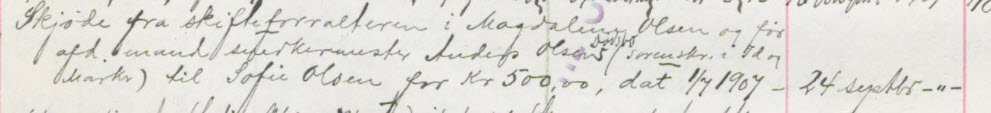 Skjøde fra skifteforvalteren i Magdalene Olsen og før
afd. mand Anders Olsens dødsbo (Sorenskr. i Id og
Marker) til Sofie Olsen for Kr 500,00, dat 1/7 1907 - 24 septbr -"-